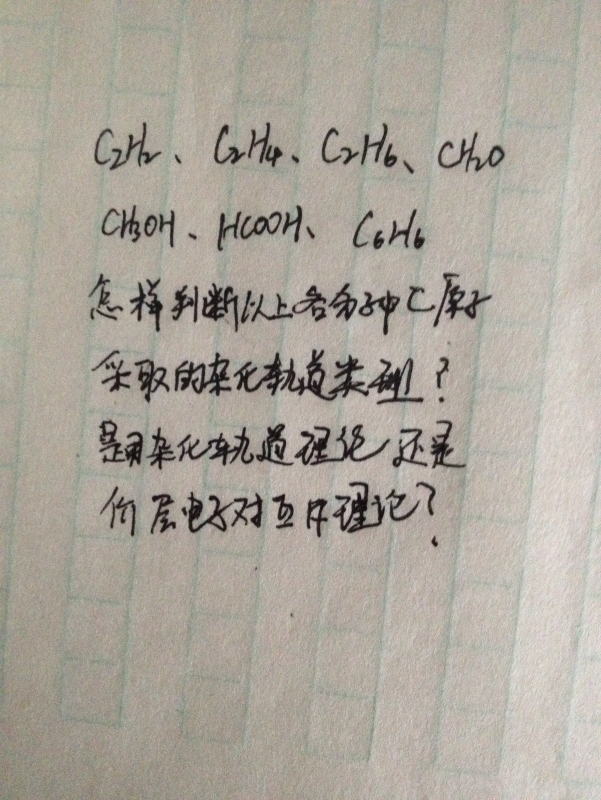 C2H2、C2H4、C2H6、CH2O
CH3OH、HCOOH、C6H6
怎样判断以上各分子中C原子
采取的杂化轨道类型？
是用杂化轨道理论还是
价层电子对互斥理论？